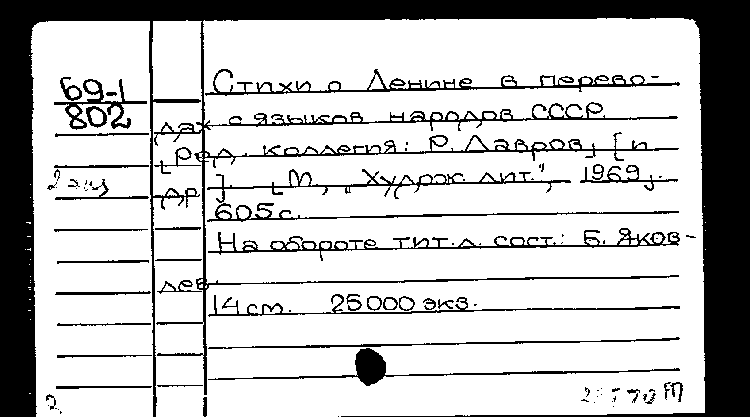 69-1
802
2 экз
Стихи о Ленине в перево-
дах с языков народов СССР.
[Ред. коллегия: Р. Лавров, [и
др.]. [М., „Худож. лит.", 1969].
605 с.
На обороте тит. л. сост.: Б. Яков-
лев.
14 см. 25000 экз.
2